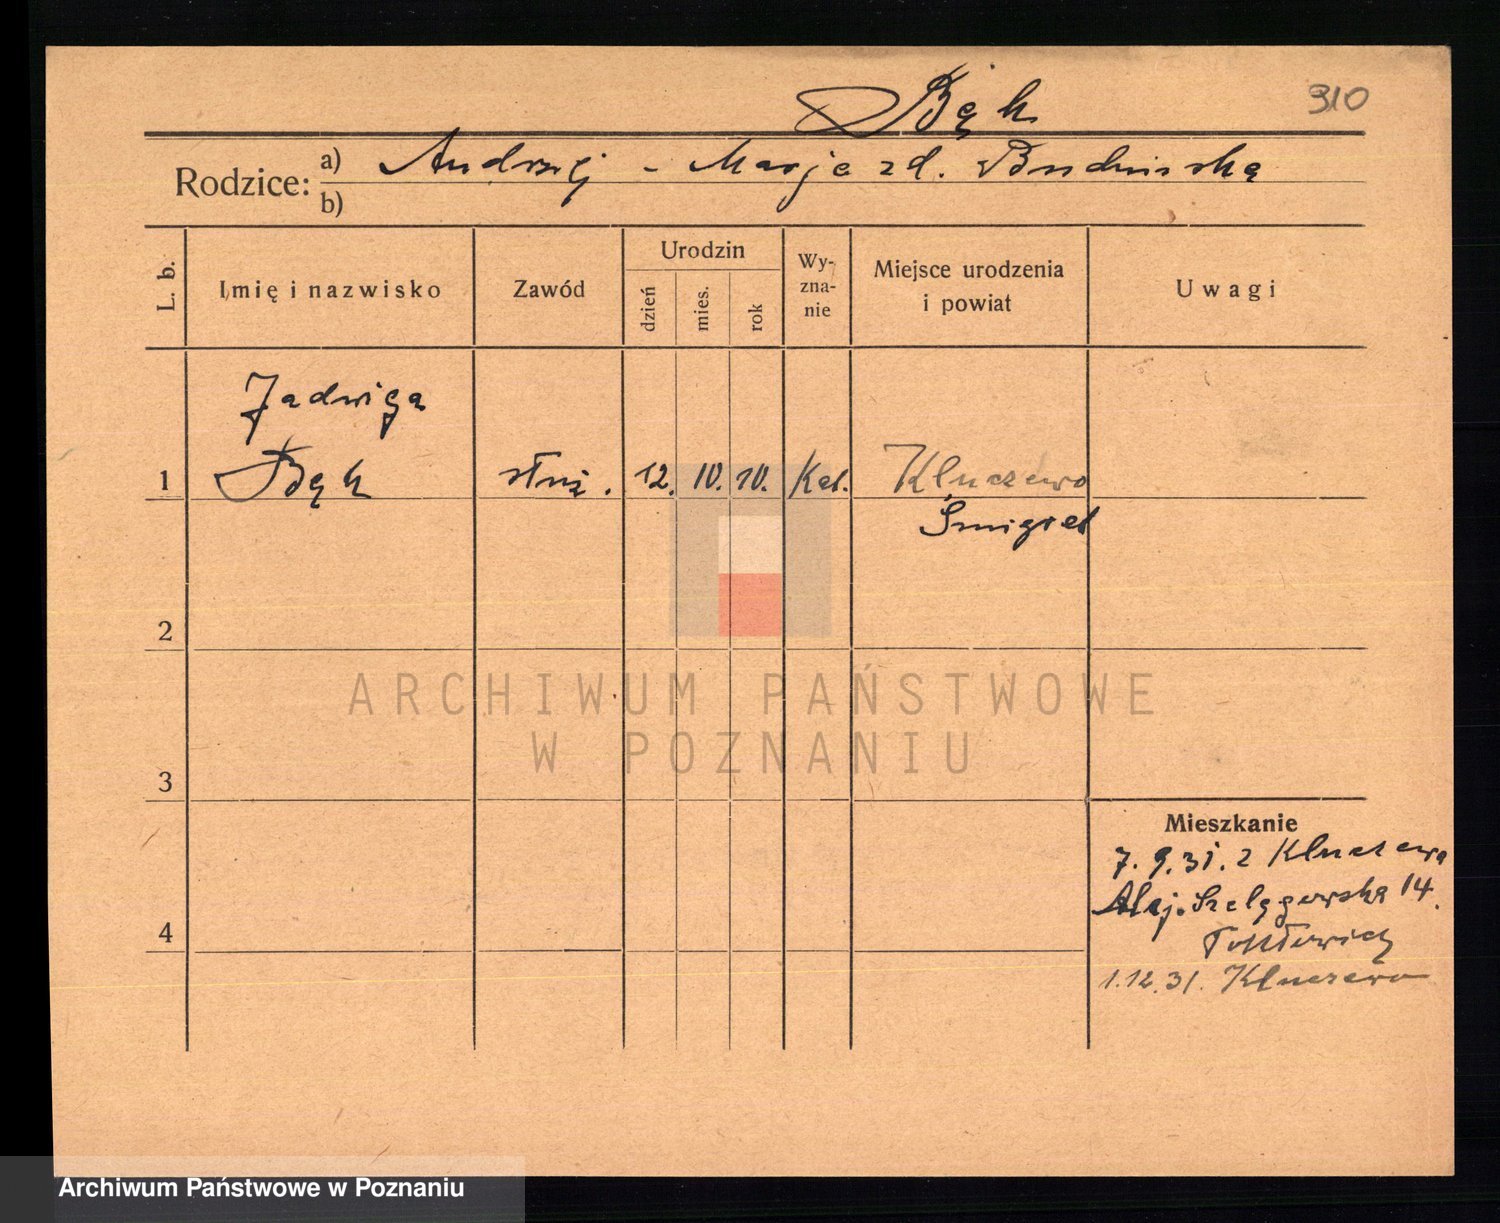 Bąk
310
Rodzice: a) Andrzej - Marja zd. Budzińska
b)
L. b.
Imię i nazwisko
Zawód
Urodzin
dzień
mies.
rok
Wy-
zna-
nie
Miejsce urodzenia
i powiat
Uwagi
Jadwiga
1 Bąk służ. 12. 10. 10. Kat. Kluczewo
Śmigiel
2
ARCHIWUM PAŃSTWOWE
W POZNANIU
3
Mieszkanie
7. 9. 31. z Kluczewa
Alej. Szelągowska 14.
4
1.12.31. Kluczewo
Archiwum Państwowe w Poznaniu